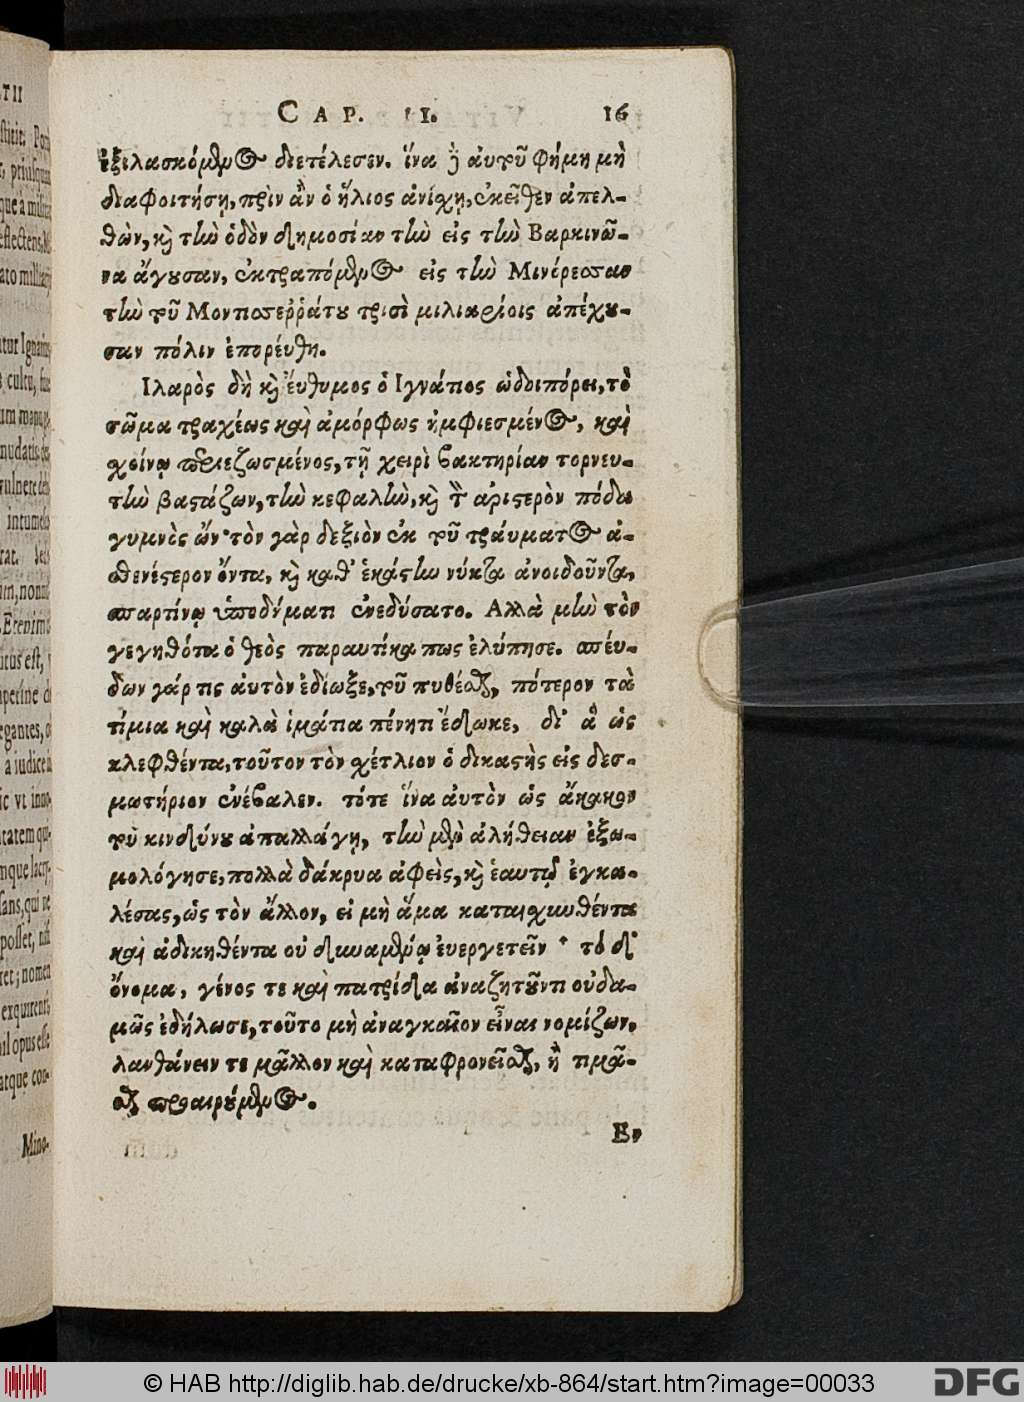 CAP. II. 16
ἐξιλασκόμενος διετέλεσεν. ἵνα ἢ αὐτοῦ φήμη μὴ
διαφοιτήσῃ, πρὶν ἂν ὁ ἥλιος ἀνίσχῃ, ἐκεῖθεν ἀπελ-
θὼν, καὶ τὴν ὁδὸν δημοσίαν τὴν εἰς τὴν Βαρκινῶ-
να ἄγουσαν, ἐκτραπόμενος εἰς τὴν Μινέρεσταν
τὴν τοῦ Μονπστεῤῥάτου τρισὶ μιλιαρίοις ἀπέχου-
σαν πόλιν ἐπορεύθη.
Ιλαρὸς δὴ καὶ εὔθυμος ὁ Ιγνάτιος ὡδοιπόρει, τὸ
σῶμα τραχέως καὶ ἀμόρφως ἠμφιεσμένος, καὶ
σχοίνῳ περιεζωσμένος, τῇ χειρὶ βακτηρίαν τορνευ-
τὴν βαστάζων, τὴν κεφαλὴν, καὶ τὸν ἀριστερὸν πόδα
γυμνὸς ὤν· τὸν γὰρ δεξιὸν ἐκ τοῦ τραύματος ἀ-
σθενέστερον ὄντα, καὶ καθ' ἑκάστην νύκτα ἀνοιδοῦντα,
σπαρτίνῳ ὑποδήματι ἐνεδύσατο. Αλλὰ μὴν τὸν
γεγηθότα ὁ θεὸς παραυτίκα πως ἐλύπησε. σπέυ-
δων γάρ τις αὐτὸν ἐδίωξε, τοῦ πυθέσθαι, πότερον τὰ
τίμια καὶ καλὰ ἱμάτια πένητι ἔδωκε, δι' ἃ ὡς
κλεφθέντα, τοῦτον τὸν σχέτλιον ὁ δικαστὴς εἰς δεσ-
μωτήριον ἐνέβαλεν. τότε ἵνα αὐτὸν ὡς ἄκακον
τοῦ κινδύνου ἀπαλλάγῃ, τὴν μὲν ἀλήθειαν ἐξω-
μολόγησε, πολλὰ δάκρυα ἀφεὶς, καὶ ἑαυτῷ ἐγκα-
λέσας, ὡς τὸν ἄλλον, εἰ μὴ ἅμα καταισχυνθέντα
καὶ ἀδικηθέντα οὐ δυναμένῳ ἐυεργετεῖν· τό δ'
ὄνομα, γένος τε καὶ πατρίδα ἀναζητοῦντι οὐδα-
μῶς ἐδήλωσε, τοῦτο μὴ ἀναγκαῖον εἶναι νομίζων,
λανθάνειν τε μᾶλλον καὶ καταφρονεῖσθαι, ἢ τιμᾶ-
σθαι προαιρούμενος.
Ε,
© HAB http://diglib.hab.de/drucke/xb-864/start.htm?image=00033
DFG